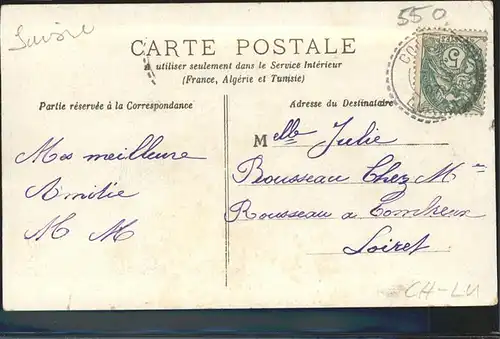 Suisse
550
CARTE POSTALE
A utiliser seulement dans le Service Intérieur
(France, Algérie et Tunisie)
Partie réservée à la Correspondance
Adresse du Destinataire
Mes meilleure
Amitie
M M
Melle Julie
Rousseau Chez Mme
Rousseau a
Loiret
CH-LU
5